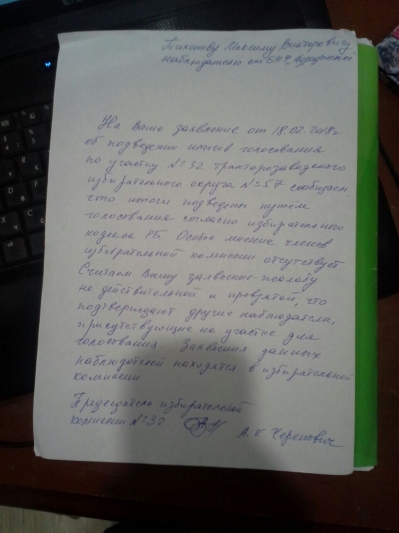 Тихонову Максиму Викторовичу
наблюдателю от БНФ
На Ваше заявление от 18.02.2018г
об подведении итогов голосования
по участку №32 Тракторозаводского
избирательного округа №57 сообщаем,
что итоги подведены путём
голосования согласно избирательного
кодекса РБ Особое мнение членов
избирательной комиссии отсутствует.
Считаем Вашу заявление-жалобу
не действительной и предвзятой, что
подтверждают другие наблюдатели,
присутствующие на участке для
голосования Заявления данных
наблюдателей находятся в избирательной
комиссии
Председатель избирательной
комиссии №32
А. К.